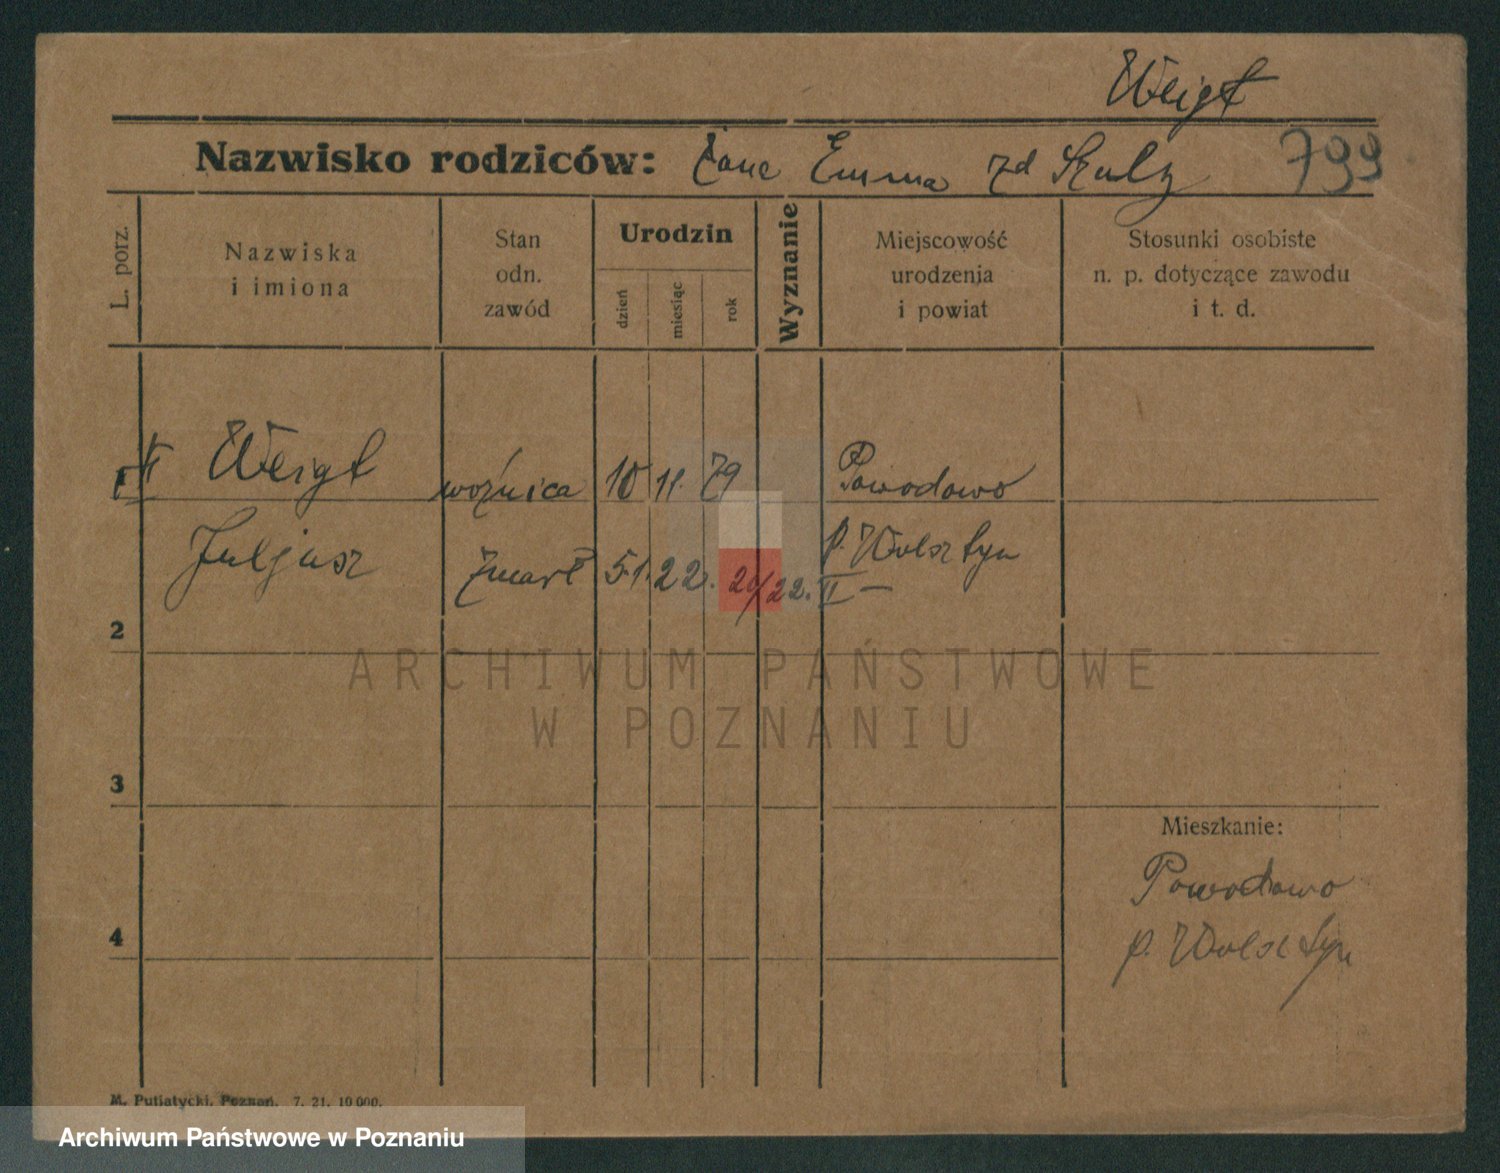 Weigt
Nazwisko rodziców: Żona Emma zd Szulz 799
L. porz.
Nazwiska
i imiona
Stan
odn.
zawód
Urodzin
dzień
miesiąc
rok
Wyznanie
Miejscowość
urodzenia
i powiat
Stosunki osobiste
n. p. dotyczące zawodu
i t. d.
Weigt woźnica 10 11. 79 Powodowo
Juljusz zmarł 5.1.22. 24/22. II — p. Wolsztyn
2
3
4
Mieszkanie:
Powodowo
p. Wolsztyn
ARCHIWUM PAŃSTWOWE
W POZNANIU
M. Putiatycki. Poznań. 7. 21. 10 000.
Archiwum Państwowe w Poznaniu